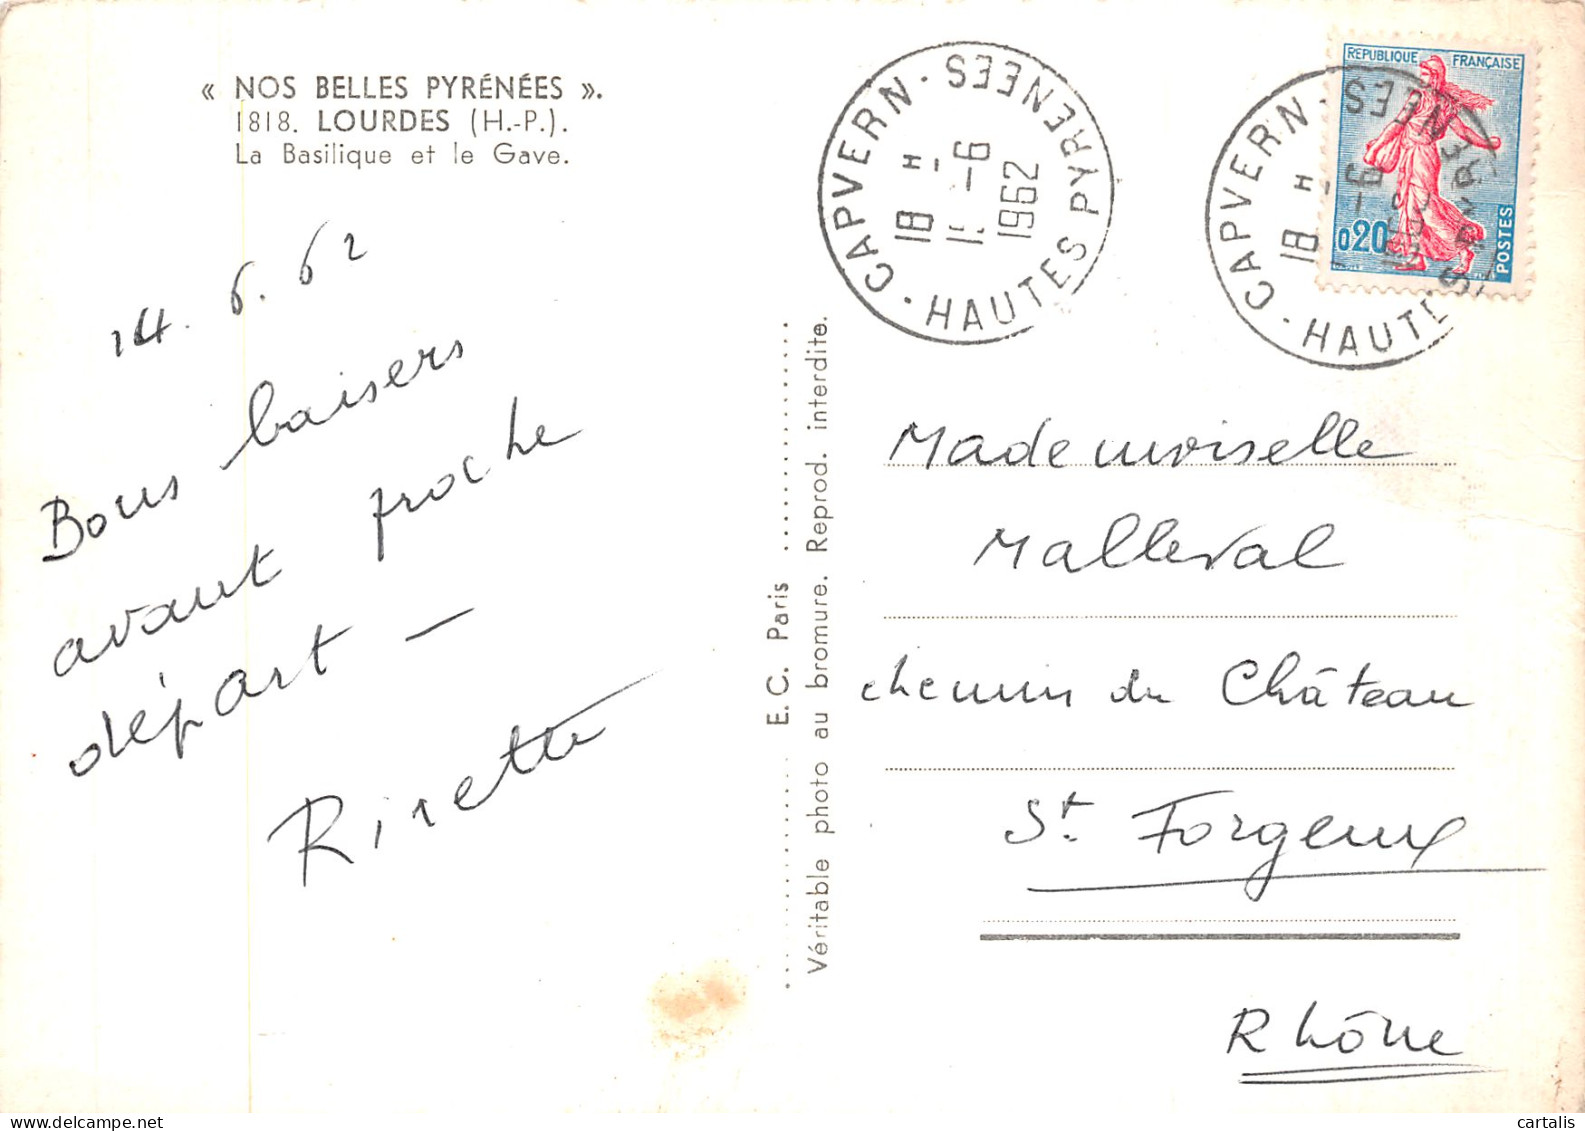 « NOS BELLES PYRÉNÉES ».
1818. LOURDES (H.-P.).
La Basilique et le Gave.
14. 6. 62
Bons baisers
avant proche
départ —
Rirette
E. C. Paris
Véritable photo au bromure. Reprod. interdite.
CAPVERN · HAUTES PYRENEES ·
18 H
-6
1962
CAPVERN · HAUTES
NEES
18 H
-6
REPUBLIQUE FRANÇAISE
0,20
POSTES
Mademoiselle
Malleval
chemin du Château
St. Forgeux
Rhône
cartalis